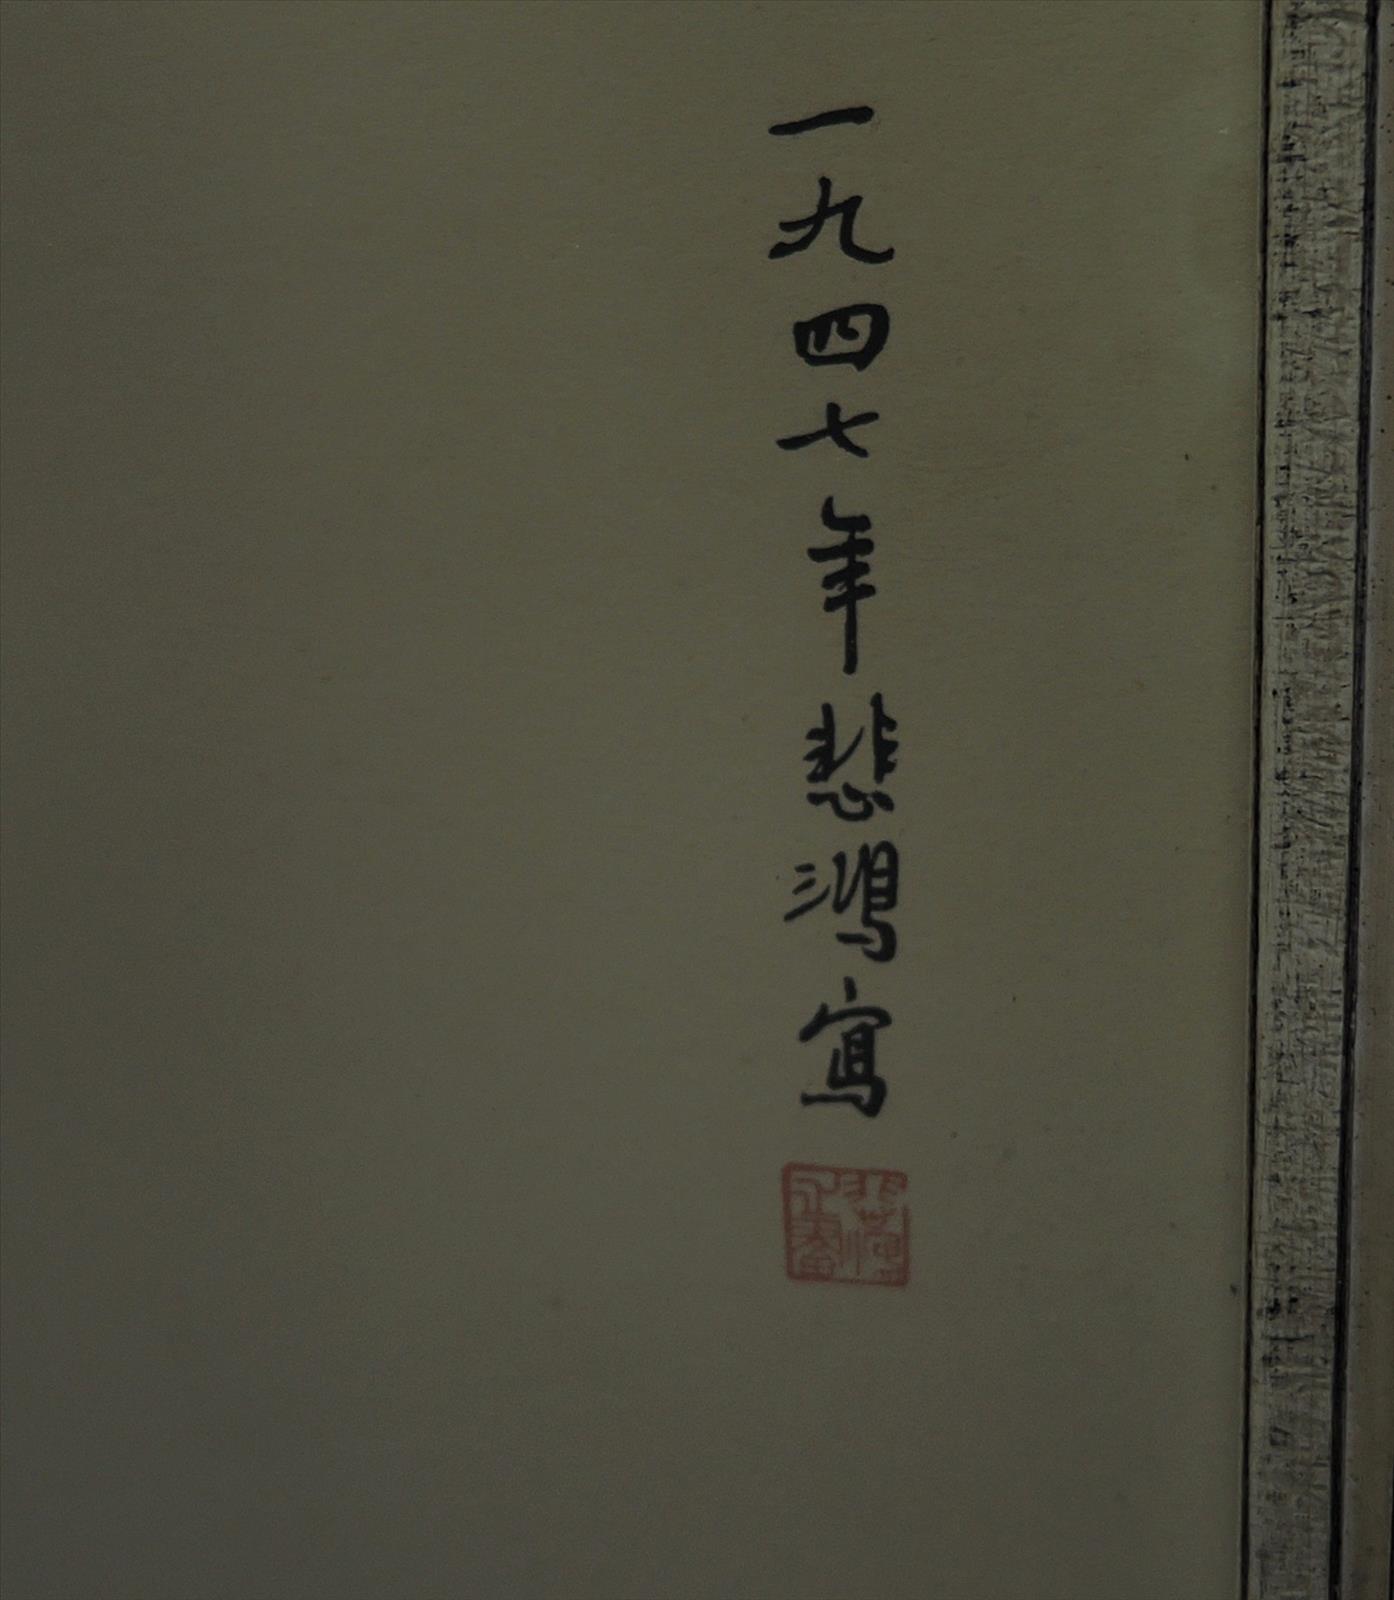 一九四七年悲鴻寫